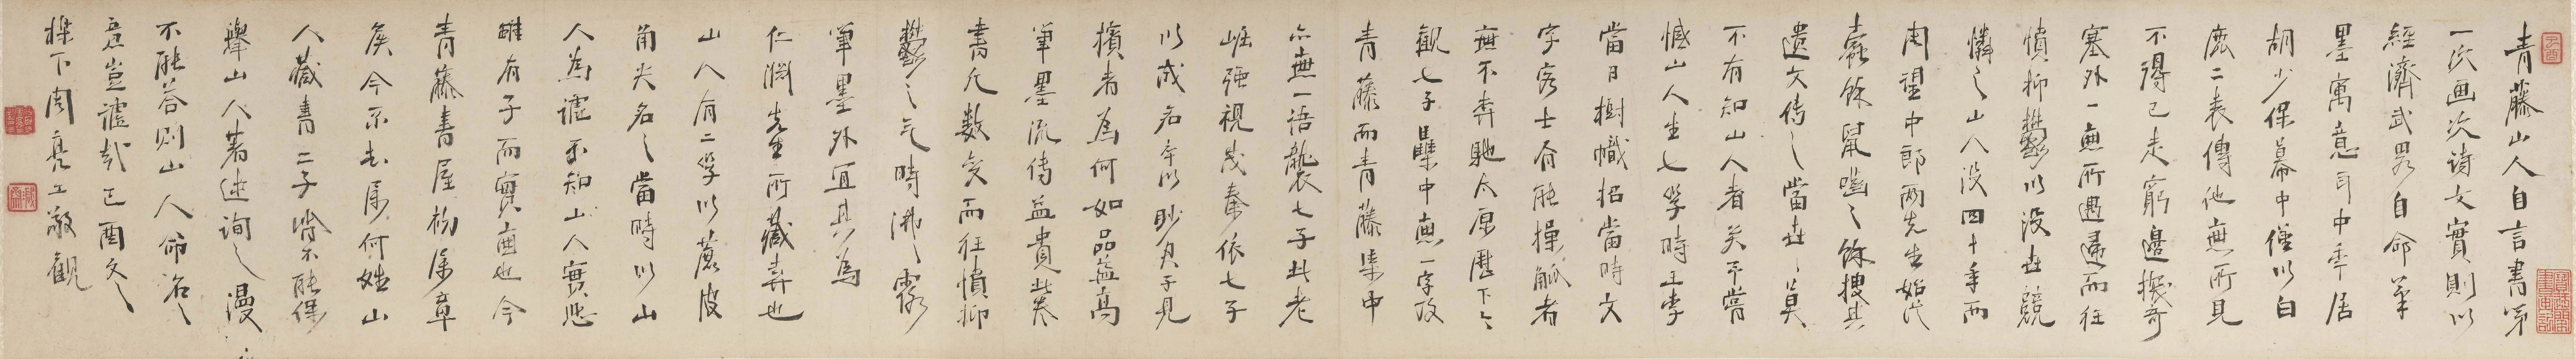 青藤山人自言書第
一次画次诗文實則以
經濟武畧自命筆
墨寓意耳中年居
胡少保幕中僅以白
鹿二表傳他無所見
不得已走窮邊搜奇
塞外一無所遇邅而狂
憤抑鬱以没世競
憐之山人没四十年而
周望中郎两先生始從
蠹餘鼠嚙之餘搜其
遺文传之當世莫
不有知山人者矣予嘗
憾山人生七子時王李
當日樹幟招當時文
字客士有能操觚者
無不奔馳太原歷下之
觀七子集中無一字及
青藤而青藤集中
亦無一语襲七子此老
崛强視茂秦依七子
以成名卒以眇乃子見
擯者為何如品益高
筆墨流传益貴此卷
書凡數变而狂憤抑
鬱之气時沸沸露
筆墨外宜其為
仁淵先生所藏弆也
山人有二子以蔗皮
角尖名之當時以山
人為謔不知山人實悲
雖有子而實無也今
青藤書屋初歸章
矦今不知歸何姓山
人藏書二子皆不能保
舉山人著述詢之漫
不能荅則山人命名之
意豈謔哉己酉冬
櫟下周亮工敬觀